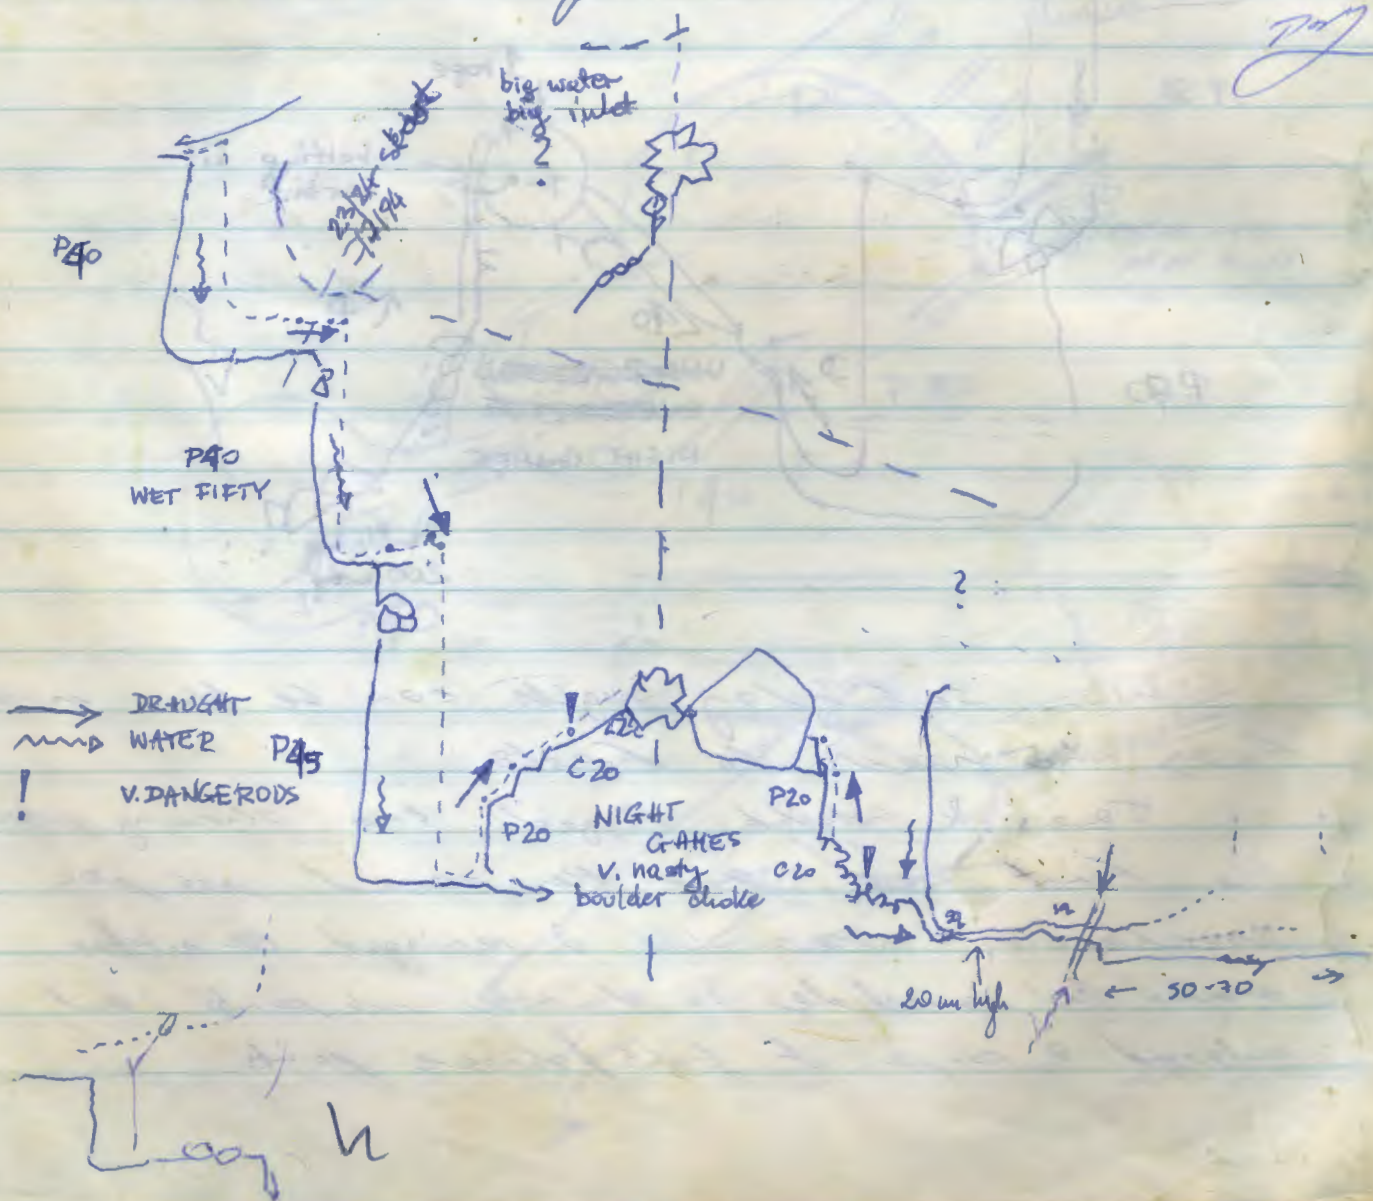 big water
big inlet
?
23/24
WET FIFTY
?
DRAUGHT
WATER
! V. DANGEROUS
!
C20
P20
NIGHT
GAMES
v. nasty
boulder choke
P20
C20
!
20 cm high
← 50-70 →